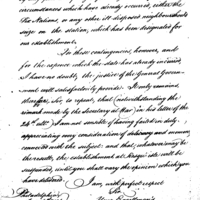 circumstances which have already occurred, either the
Six Nations, or any other ill disposed neighbours should
seize on the station, which has been designated for
our establishment.
For these contingencies, however, and
for the expence which the state has already incurred,
I have no doubt, the justice of the General Govern-
ment will satisfactorily provide. It only remains,
therefore, Sir, to repeat, that (notwithstanding the
remark made by the Secretary at War) in his letter of the
24th ult.) I am not sensible of having failed in duly
appreciating any consideration of delicacy and moment
connected with the subject: and that, whatsoever may be
the result, the establishment at Presqu' isle will be
suspended, until you shall vary the opinion which you
have delivered.
I am, with perfect respect
Sir
Philadelphia
Your Excellency's